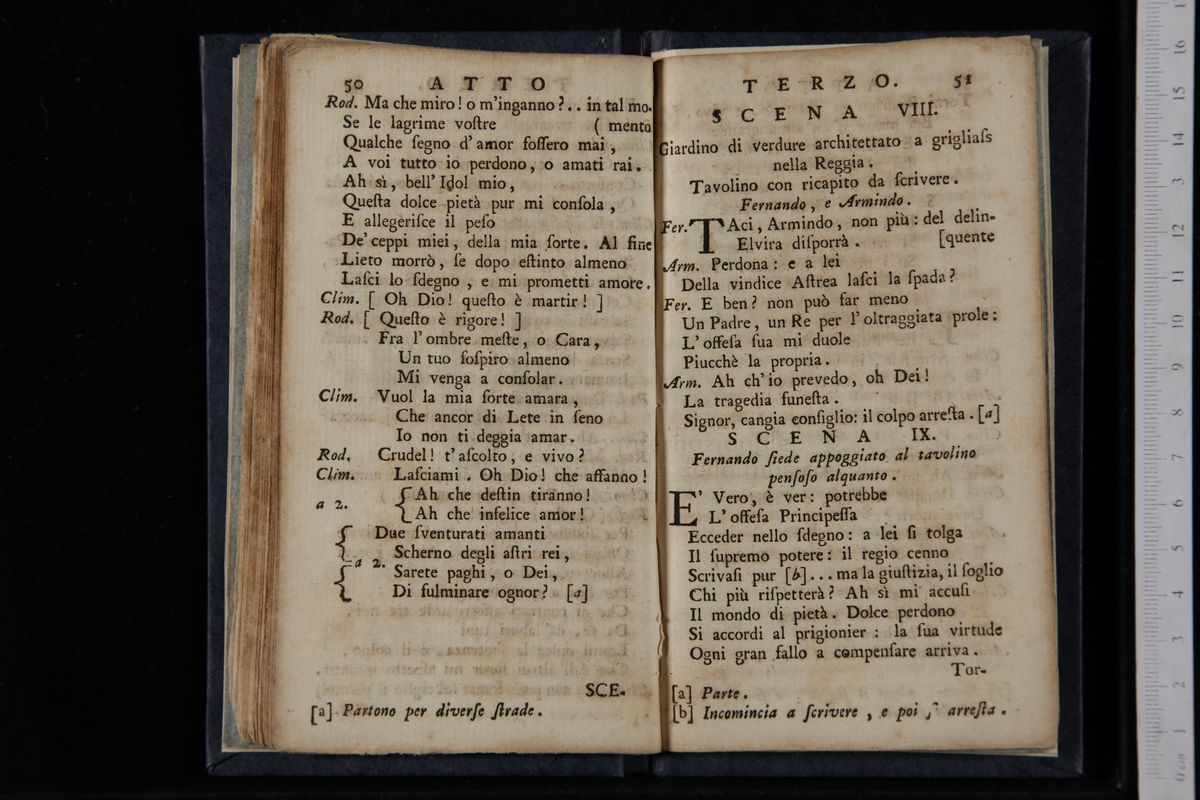 50 ATTO
Rod. Ma che miro! o m'inganno?.. in tal mo.
Se le lagrime voſtre ( mento
Qualche ſegno d'amor foſſero mai,
A voi tutto io perdono, o amati rai.
Ah sì, bell'Idol mio,
Queſta dolce pietà pur mi conſola,
E allegeriſce il peſo
De'ceppi miei, della mia ſorte. Al fine
Lieto morrò, ſe dopo eſtinto almeno
Laſci lo ſdegno, e mi prometti amore.
Clim. [ Oh Dio! queſto è martir! ]
Rod. [ Queſto è rigore! ]
Fra l'ombre meſte, o Cara,
Un tuo ſoſpiro almeno
Mi venga a conſolar.
Clim. Vuol la mia ſorte amara,
Che ancor di Lete in ſeno
Io non ti deggia amar.
Rod. Crudel! t'aſcolto, e vivo?
Clim. Laſciami. Oh Dio! che affanno!
a 2. { Ah che deſtin tiranno!
Ah che infelice amor!
{ Due ſventurati amanti
Scherno degli aſtri rei,
a 2.
{ Sarete paghi, o Dei,
Di fulminare ognor? [a]
SCE-
[a] Partono per diverſe ſtrade.
TERZO. 51
SCENA VIII.
Giardino di verdure architettato a grigliaſs
nella Reggia.
Tavolino con ricapito da ſcrivere.
Fernando, e Armindo.
Fer. TAci, Armindo, non più: del delin-
Elvira diſporrà. [quente
Arm. Perdona: e a lei
Della vindice Aſtrea laſci la ſpada?
Fer. E ben? non può far meno
Un Padre, un Re per l'oltraggiata prole:
L'offeſa ſua mi duole
Piucchè la propria.
Arm. Ah ch'io prevedo, oh Dei!
La tragedia funeſta.
Signor, cangia conſiglio: il colpo arreſta. [a]
SCENA IX.
Fernando ſiede appoggiato al tavolino
penſoſo alquanto.
E' Vero, è ver: potrebbe
L'offeſa Principeſſa
Ecceder nello ſdegno: a lei ſi tolga
Il ſupremo potere: il regio cenno
Scrivaſi pur [b]... ma la giuſtizia, il ſoglio
Chi più riſpetterà? Ah sì mi accuſi
Il mondo di pietà. Dolce perdono
Si accordi al prigionier: la ſua virtude
Ogni gran fallo a compenſare arriva.
Tor-
[a] Parte.
[b] Incomincia a ſcrivere, e poi ſ' arreſta.